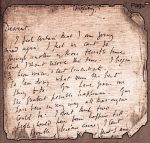 Tuesday.
Dearest,
I feel certain that I am going
mad again. I feel we can't go
through another of those terrible times.
And I shan't recover this time. I begin
to hear voices, and can't concentrate.
So I am doing what seems the best
thing to do. You have given me
the greatest possible happiness. You
have been in every way all that anyone
could be. I don't think two
people could have been happier till
this terrible disease came. I can't